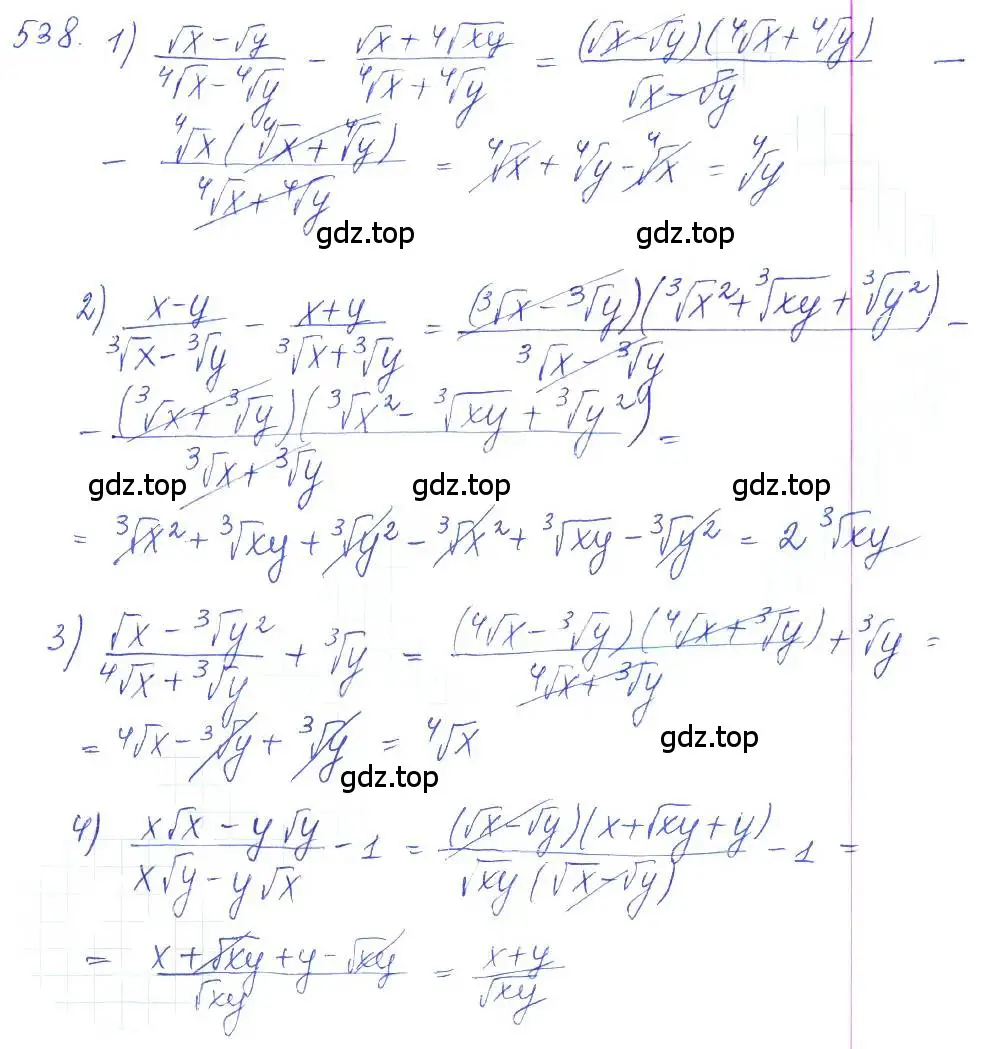 538. 1) (√x - √y)/(⁴√x - ⁴√y) - (√x + ⁴√xy)/(⁴√x + ⁴√y) = (√x - √y)(⁴√x + ⁴√y)/(√x - √y) -
- ⁴√x(⁴√x + ⁴√y)/(⁴√x + ⁴√y) = ⁴√x + ⁴√y - ⁴√x = ⁴√y
gdz.top gdz.top
2) (x - y)/(³√x - ³√y) - (x + y)/(³√x + ³√y) = (³√x - ³√y)(³√x² + ³√xy + ³√y²)/(³√x - ³√y) -
- (³√x + ³√y)(³√x² - ³√xy + ³√y²)/(³√x + ³√y) =
gdz.top gdz.top gdz.top
= ³√x² + ³√xy + ³√y² - ³√x² + ³√xy - ³√y² = 2 ³√xy
3) (√x - ³√y²)/(⁴√x + ³√y) + ³√y = (⁴√x - ³√y)(⁴√x + ³√y)/(⁴√x + ³√y) + ³√y =
= ⁴√x - ³√y + ³√y = ⁴√x
gdz.top gdz.top
4) (x√x - y√y)/(x√y - y√x) - 1 = (√x - √y)(x + √xy + y)/(√xy(√x - √y)) - 1 =
= (x + √xy + y - √xy)/√xy = (x + y)/√xy